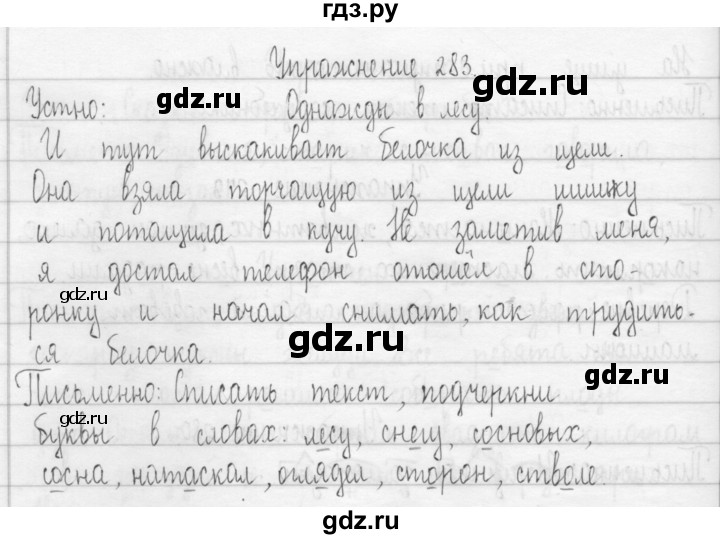 гдз.ру
Упражнение 283.
gdz.ru
gdz.ru
Устно: Однажды в лесу
И тут выскакивает белочка из щели.
Она взяла торчащую из щели шишку
и потащила в кучу. Не заметив меня,
я достал телефон отошёл в сто-
gdz.ru
ронку и начал снимать, как трудить-
gdz.ru
ся белочка.
Письменно: Списать текст, подчеркни
gdz.ru
gdz.ru
буквы в словах: лесу, снегу, сосновых,
сосна, натаскал, оглядел, сторон, стволе
gdz.ru